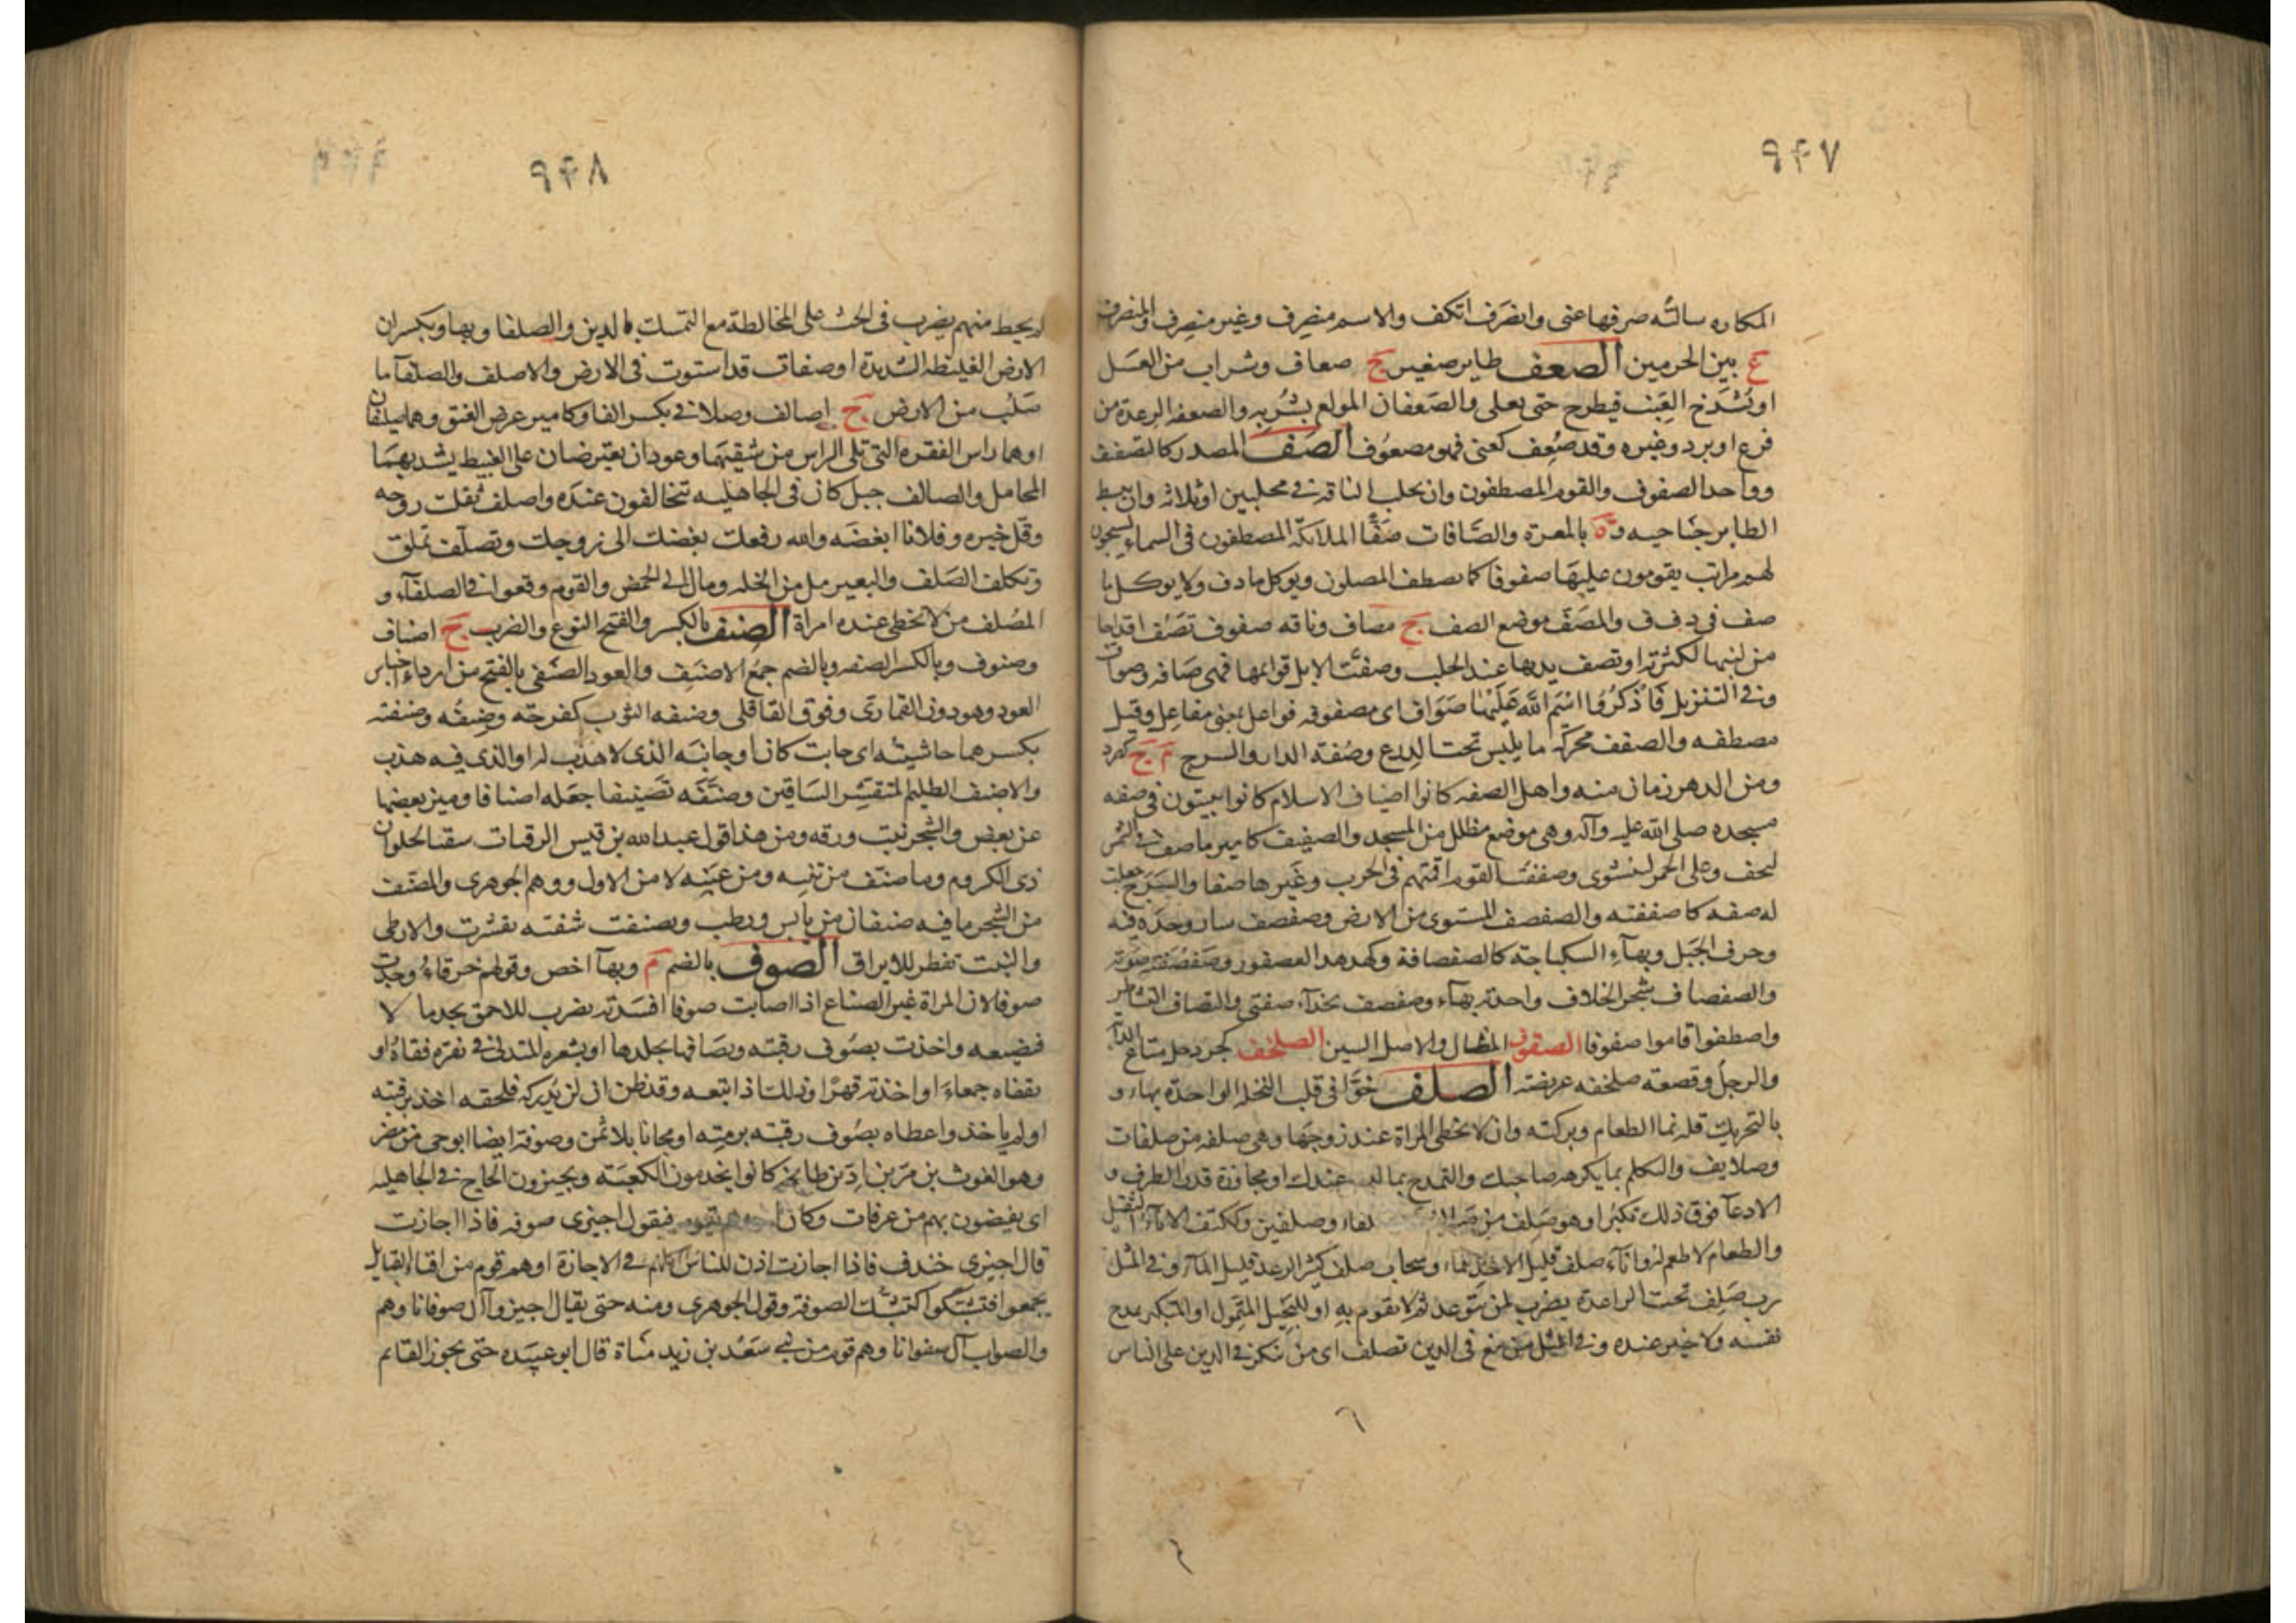 ۹۴۷
المكاره سألته صرفها عنى وانصرف انكف والاسم منصرف وغير منصرف والمنصرف
ع بين الحرمين الصعف طاير صغير ج صعاف وشراب من العسل
او يشدخ العنب فيطرح حتى يغلى والصعفان المولع بشربه والصعفه الرعدة من
فزع او برد وغيره وقد صعف كعنى فهو مصعوف الصف المصدر كالتصفيف
وواحد الصفوف والقوم المصطفون وان يحلب الناقة فى محلبين او ثلاثه وان يبسط
الطاير جناحيه وة بالمعرة والصافات صفا الملائكة المصطفون فى السماء يسبحون
لهم مراتب يقومون عليها صفوفا كما يصطف المصلون ويوكل ما دف ولا يوكل ما
صف فى د ف ف والمصف موضع الصف ج مصاف وناقه صفوف تصف اقداحا
من لبنها لكثرته او تصف يديها عند الحلب وصفت الابل قوائمها فهى صافه وصواف
وفى التنزيل فاذكروا اسم الله عليها صواف اى مصفوفه فواعل بمعنى مفاعل وقيل
مصطفه والصفف محركة ما يلبس تحت الدرع وصفة الدار والسرج م ج كصرد
ومن الدهر زمان منه واهل الصفه كانوا اضياف الاسلام كانوا يبيتون فى صفه
مسجده صلى الله عليه وآله وهى موضع مظلل من المسجد والصفيف كامير ما صف فى الشمس
ليجف وعلى الجمر لينشوى وصففت القوم اقمتهم فى الحرب وغيرها صفا والسرج جعلت
له صفه كاصففته والصفصف المستوى من الارض وصفصف سار وحده فيه
وحرف الجبل وبهاء السكباجة كالصفصافة وكهدهد العصفور وصفصفته صوته
والصفصاف شجر الخلاف واحدته بهاء وصفصف
واصطفوا قاموا صفوفا الصقوف المظال والاصل السين الصلخف كجردحل متاع
والرجل وقصعة صلخفه عريضة الصلف خوافى قلب النخله الواحدة بهاء و
بالتحريك قلة نما الطعام وبركته وان لا تحظى المراة عند زوجها وهى صلفه من صلفات
وصلايف والتكلم بما يكرهه صاحبك والتمدح بما ليس عندك او مجاوزة قدر الظرف و
الادعآ فوق ذلك تكبرا وهو صلف من وصلفين وككتف الاناء الثقيل
والطعام لا طعم له واناء صلف قليل الاخذ للماء وسحاب صلف كثير الرعد قليل المآء وفى المثل
رب صلف تحت الراعدة يضرب لمن يتوعد ثم لا يقوم به او للبخيل المتمول او المتكبر يمدح
نفسه ولا خير عنده وفى المثل من يبغ فى الدين تصلف اى من ينكر فى الدين على الناس
۹۴۸
لم يحظ منهم يضرب فى الحث على المخالطة مع التمسك بالدين والصلفا وبها ويكسران
الارض الغليظه الشديدة او صفاة قد استوت فى الارض والاصلف والصلفآ ما
صلب من الارض ج اصالف وصلافى بكسر الفا وكامير عرض العنق وهما صليفان
او هما راس الفقره التى تلى الراس من شقيها وعودان يعترضان على الغبيط يشد بهما
المحامل والصالف جبل كان فى الجاهليه تتحالفون عنده واصلف ثقلت روحه
وقل خيره وفلانا ابغضه والله رفعك بغضك الى زوجك وتصلف تملق
وتكلف الصلف والبعير مل من الخله ومال الى الحمض والقوم وقعوا فى الصلفآء و
المصلف من لا تحظى عنده امراة الصنف بالكسر والفتح النوع والضرب ج اصناف
وصنوف وبالكسر الصفه وبالضم جمع الاصنف والعود الصنفى بالفتح من اردء اجناس
العود وهو دون القمارى وفوق القاقلى وصنفه الثوب كفرحة وصنفه وصنفته
بكسرهما حاشيته اى جانب كان او جانبه الذى لا هدب له او الذى فيه هدب
والاصنف الظليم المتقشر الساقين وصنفه تصنيفا جعله اصنافا وميز بعضها
عن بعض والشجر نبت ورقه ومن هذا قول عبد الله بن قيس الرقيات سقيا لحلوان
ذى الكروم وما صنف من تينه ومن عنبه لا من الاول ووهم الجوهرى والمصنف
من الشجر ما فيه صنفان من يابس ورطب وتصنفت شفته تقشرت والارطى
والنبت تفطر للايراق الصوف بالضم م وبهآ اخص وقولهم خرقاء وجدت
صوفا لان المراة غير الصناع اذا اصابت صوفا افسدته يضرب للاحمق يجد مالا
فيضيعه واخذت بصوف رقبته وبصافها بجلدها او بشعره المتدلى فى نقرة قفاه او
بقفاه جمعاء او اخذته قهرا وذلك اذا تبعه وقد ظن ان لن يدركه فلحقه اخذ برقبته
او لم ياخذ واعطاه بصوف رقبته برمته او مجانا بلا ثمن وصوفة ايضا ابو حى من مضر
وهو الغوث بن مر بن اد بن طابخه كانوا يخدمون الكعبة ويجيزون الحاج فى الجاهليه
اى يفيضون بهم من عرفات وكان فيقول اجيزى صوفه فاذا اجازت
قال اجيزى خندف فاذا اجازت اذن للناس كلهم فى الاجازة او هم قوم من افناء القبايل
تجمعوا فتشبكوا كتشبك الصوفة وقول الجوهرى ومنه حتى يقال اجيزوا آل صوفانا وهم
والصواب آل صفوانا وهم قوم من بنى سعد بن زيد مناة قال ابو عبيده حتى يجوز القايم